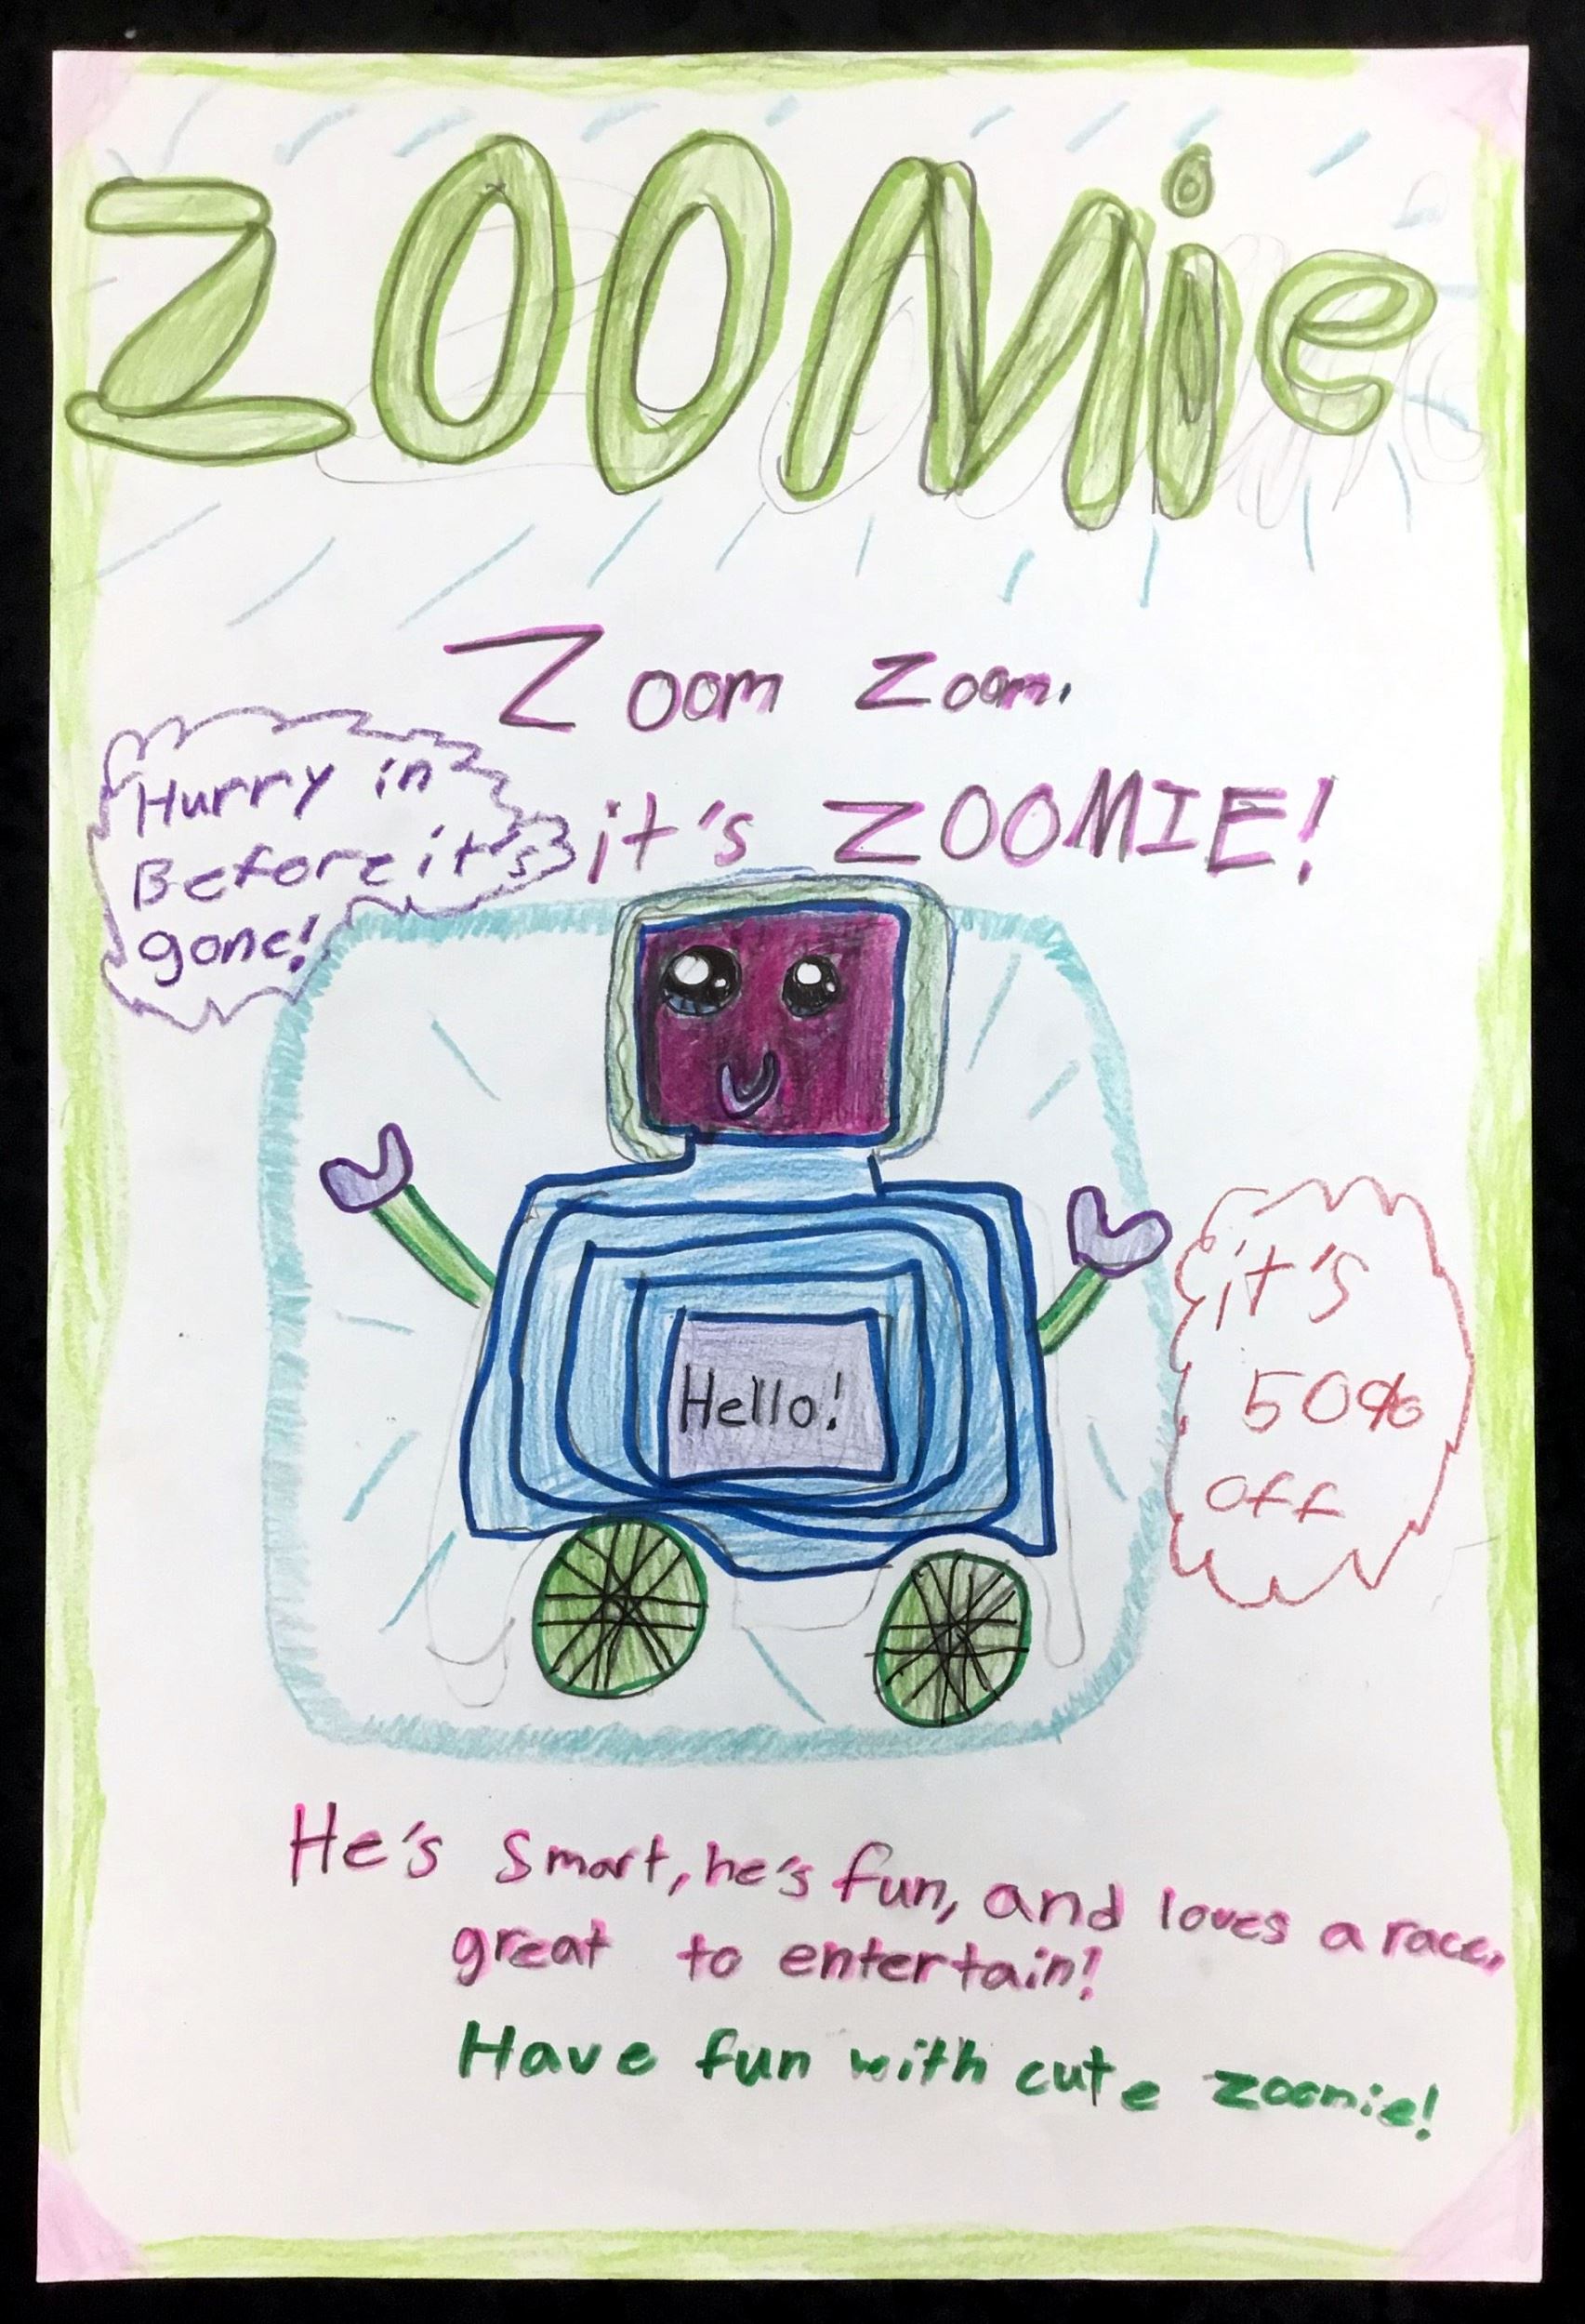 ZOOMie
Zoom Zoom.
it's ZOOMIE!
Hurry in
Before it's
gone!
Hello!
it's
50%
off
He's smart, he's fun, and loves a race,
great to entertain!
Have fun with cute zoomie!